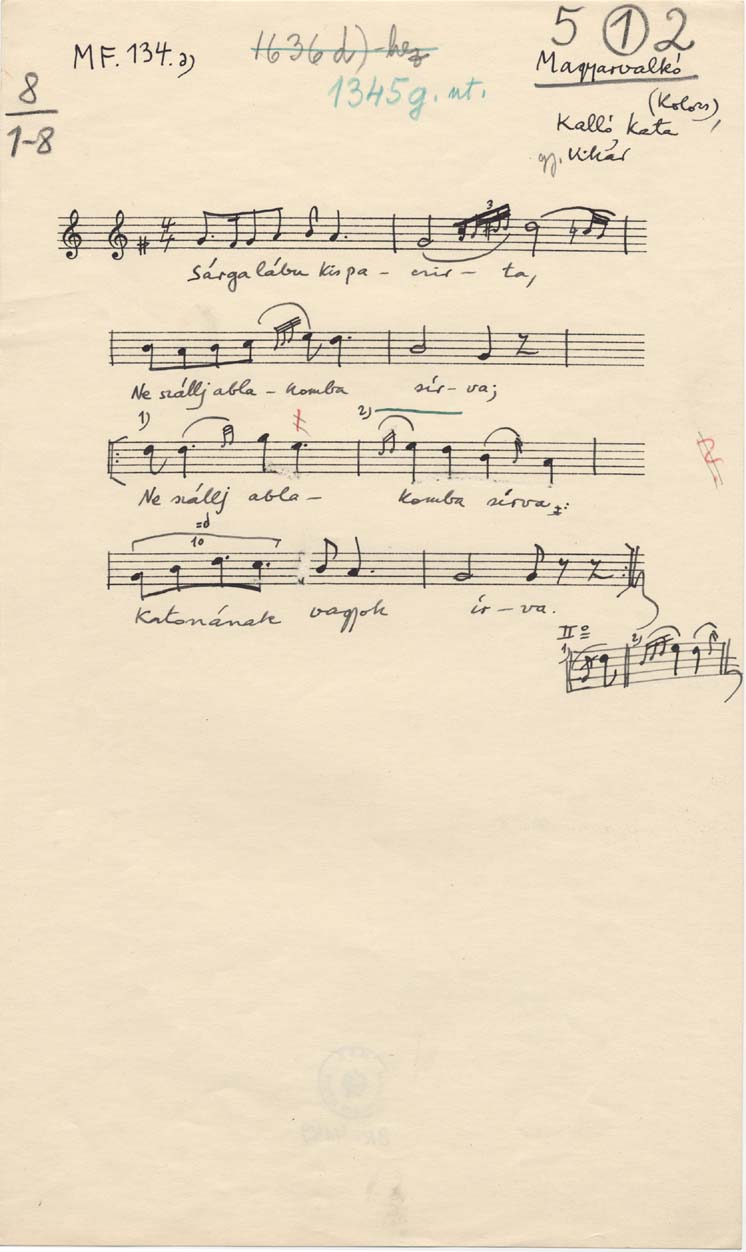 MF. 134. a)
1636 d) - hez
1345 g. nt.
5 1 2
Magyarvalkó
(Kolozs),
Kalló Kata
gy. Vikár
8
1-8
4
4
3
Sárga lábu kis pa - csir - ta,
Ne szállj abla - komba sír - va;
1) 2)
Ne szállj abla - komba sírva :
10
Katonának vagyok ír - va.
II o
1) 2)